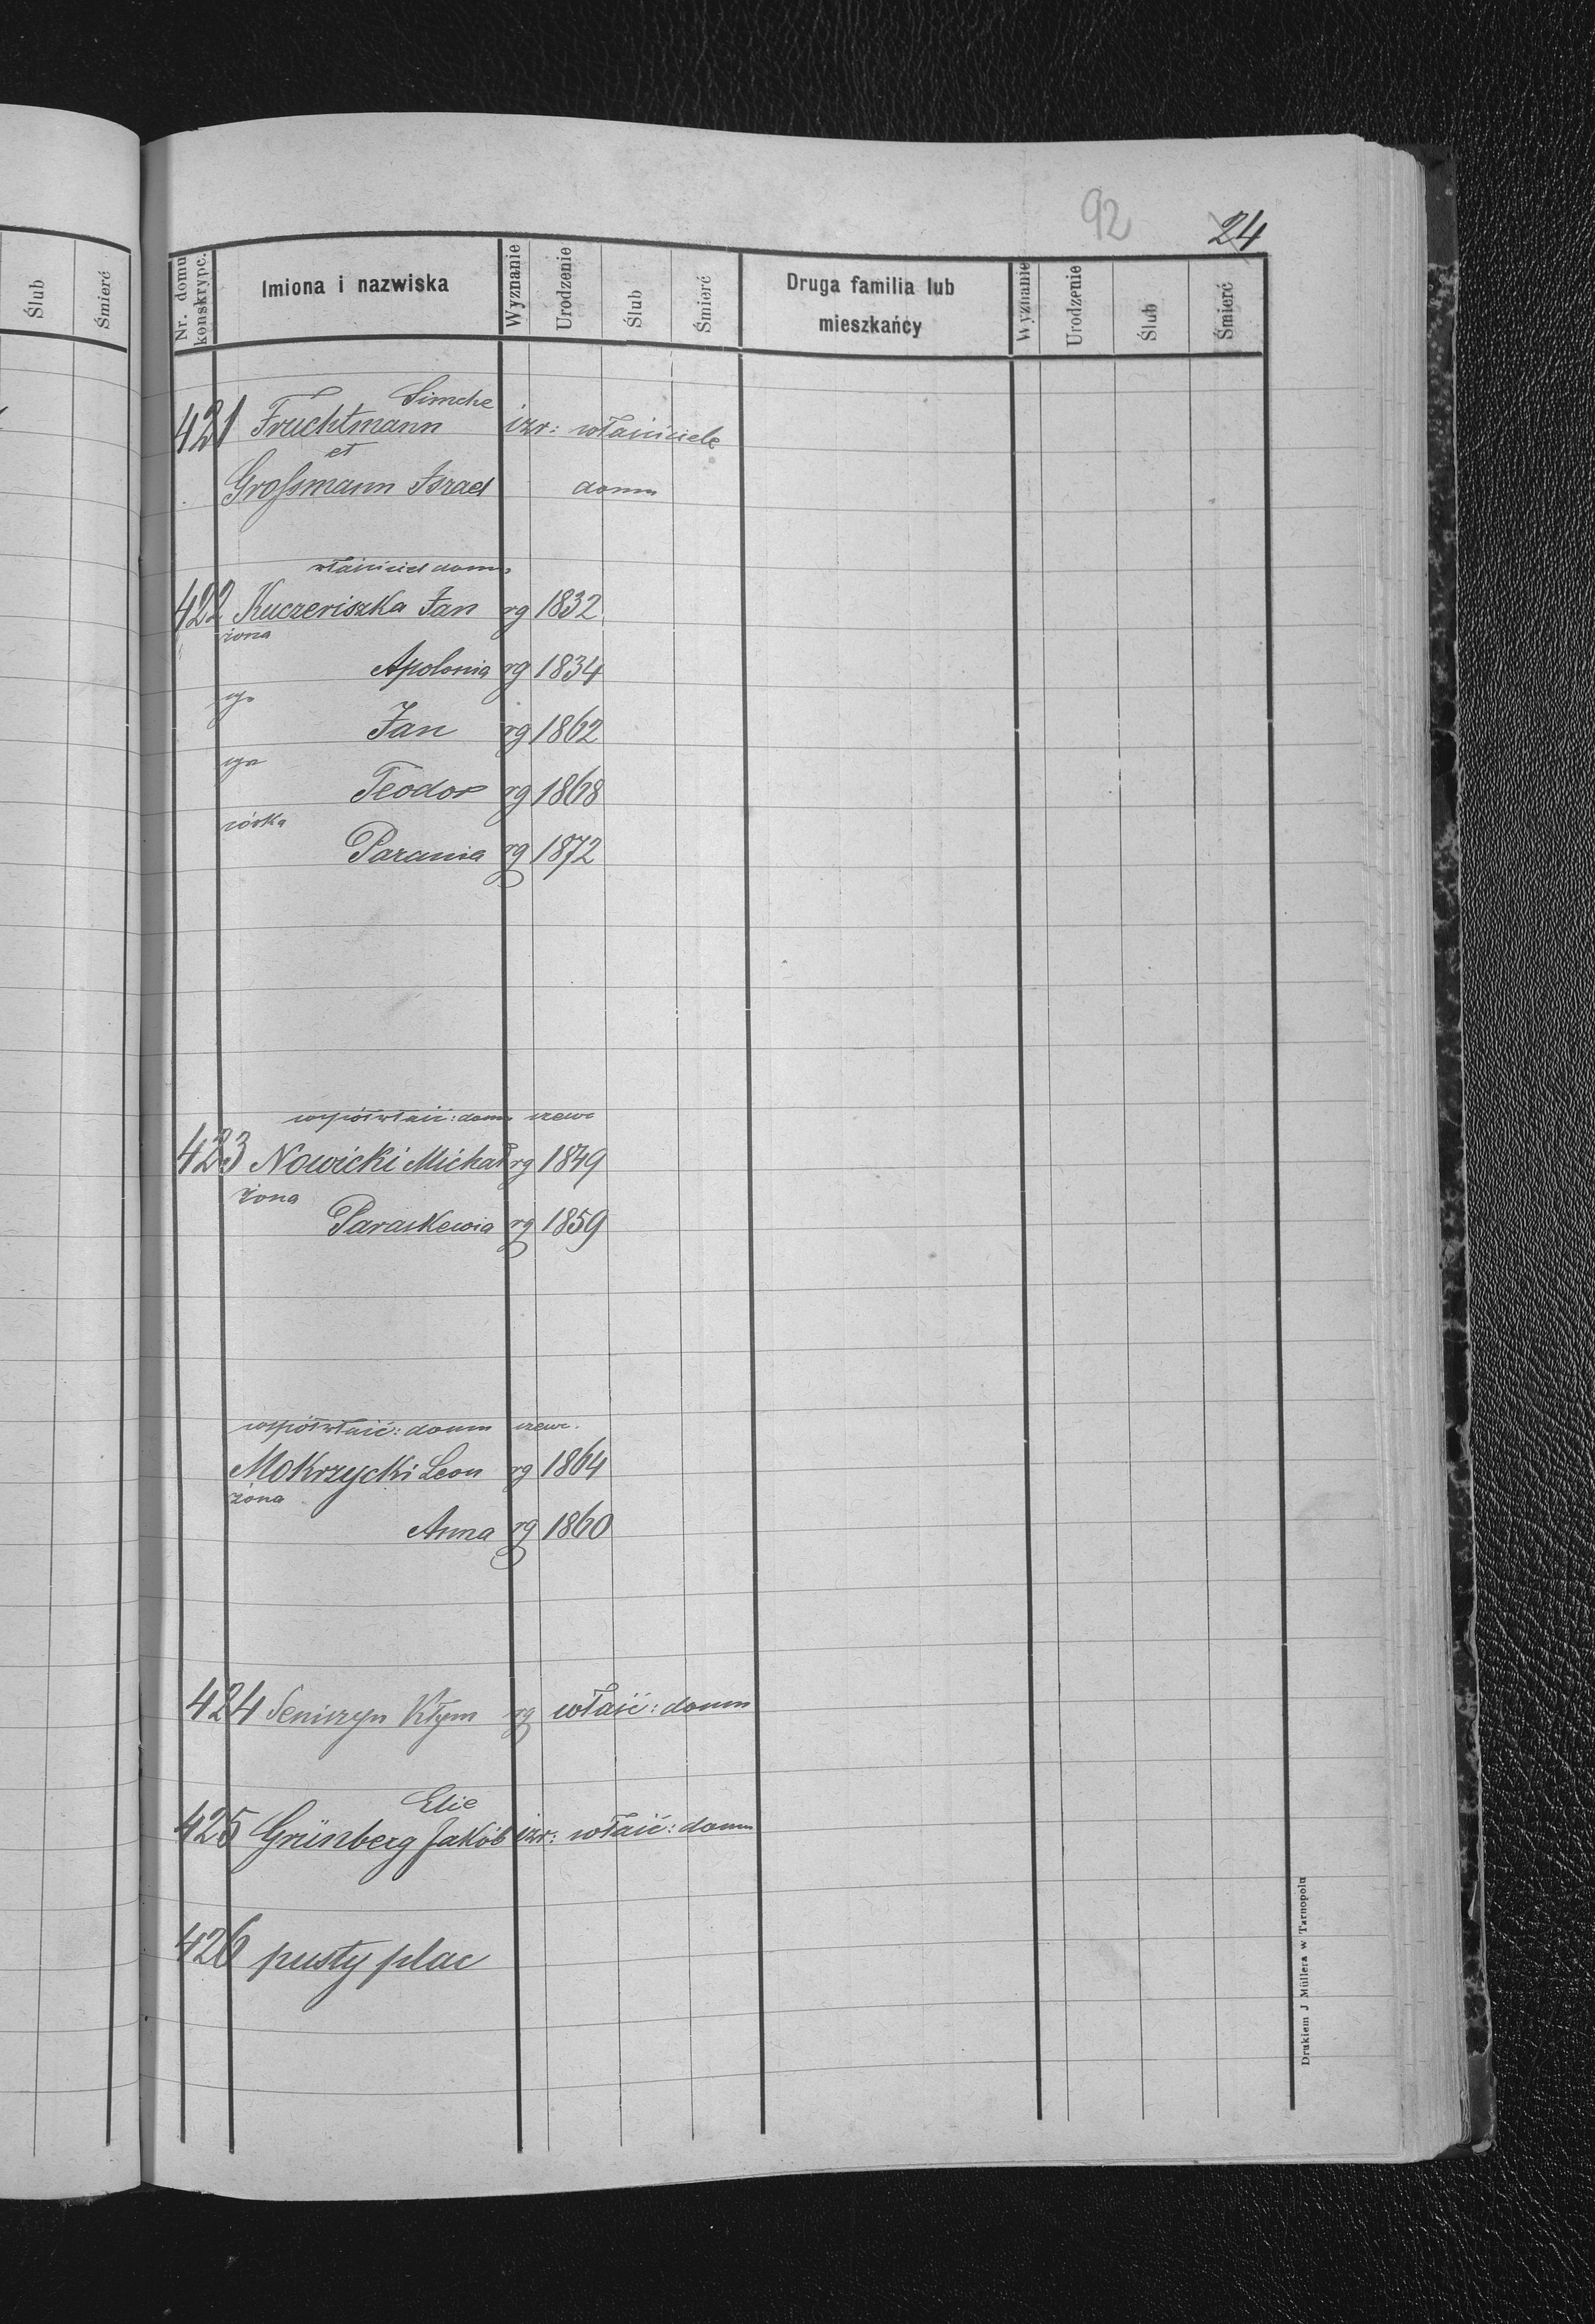 92
24
Ślub
Śmierć
Nr. domu konskrypc.
Imiona i nazwiska
Wyznanie
Urodzenie
Ślub
Śmierć
Druga familia lub mieszkańcy
Wyznanie
Urodzenie
Ślub
Śmierć
Simche
421 Fruchtmann izr: właściciele
et
Grossmann Israel domu
właściciel domu
422 Kuczeriszka Jan rg 1832
żona
Apolonia rg 1834
syn
Jan rg 1862
syn
Teodor rg 1868
córka
Parania rg 1872
współwłaść: domu szewc
423 Nowicki Michał rg 1849
żona
Paraskewia rg 1859
współwłaść: domu szewc.
Mokrzycki Leon rg 1864
żona
Anna rg 1860
424 Seniszyn Kłym rg właść: domu
Elie
425 Grünberg Jakób izr: właść: domu
426 pusty plac
Drukiem J Müllera w Tarnopolu